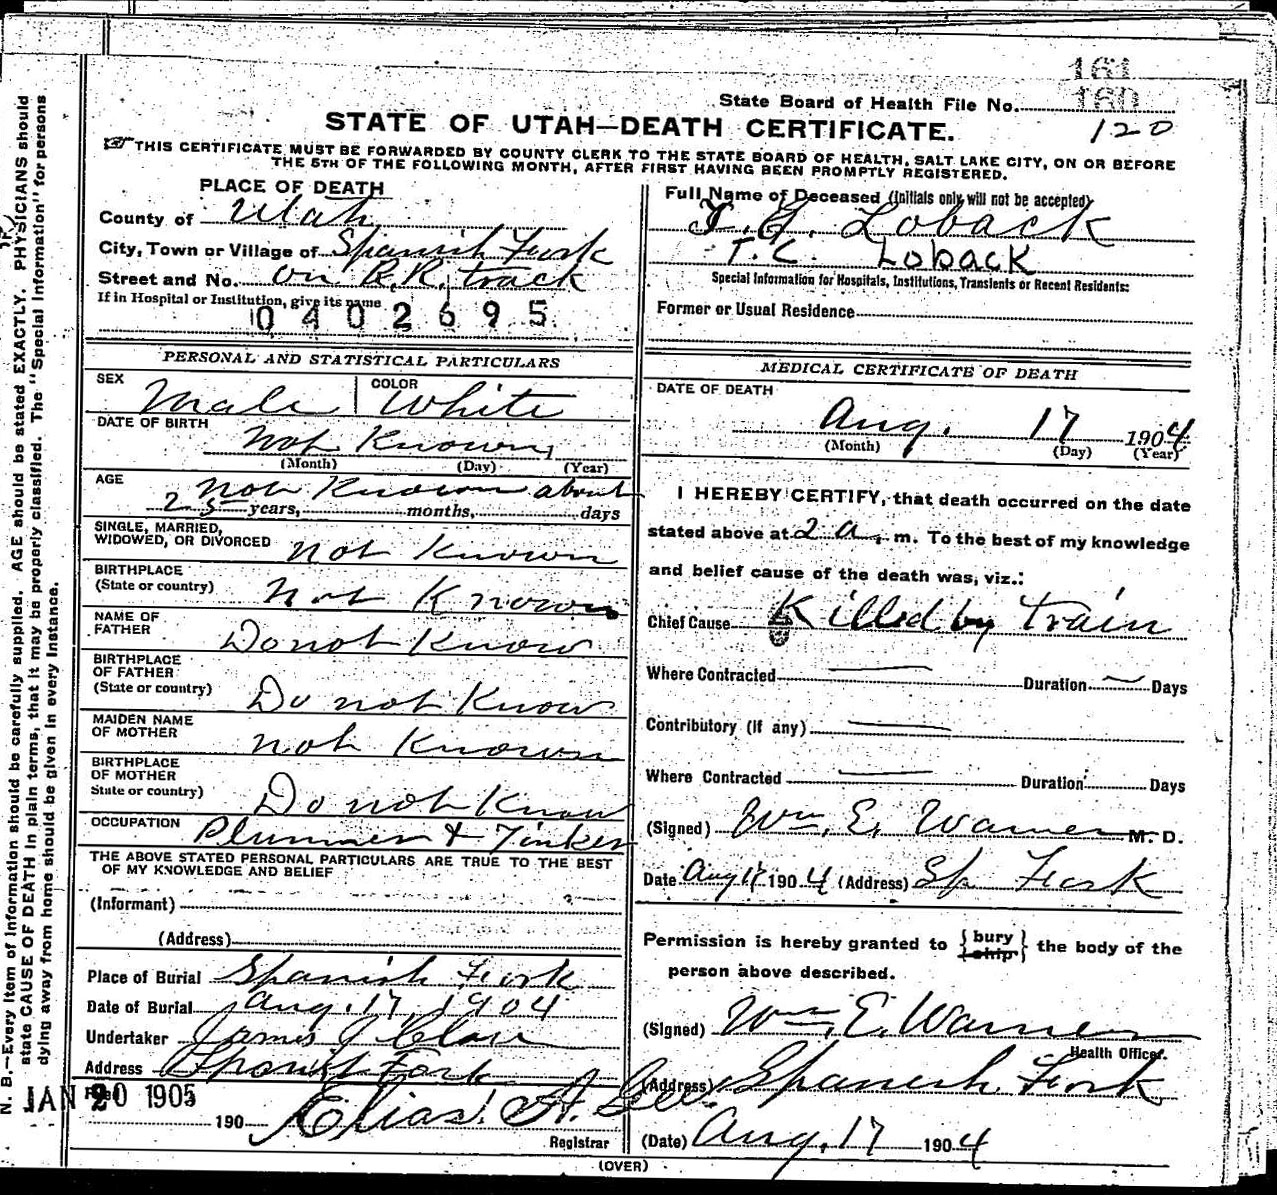 161
State Board of Health File No. 160
120
STATE OF UTAH—DEATH CERTIFICATE.
THIS CERTIFICATE MUST BE FORWARDED BY COUNTY CLERK TO THE STATE BOARD OF HEALTH, SALT LAKE CITY, ON OR BEFORE
THE 5TH OF THE FOLLOWING MONTH, AFTER FIRST HAVING BEEN PROMPTLY REGISTERED.
PLACE OF DEATH
County of Utah
City, Town or Village of Spanish Fork
Street and No. on R.R. track
If in Hospital or Institution, give its name
0402695
PERSONAL AND STATISTICAL PARTICULARS
SEX Male COLOR White
DATE OF BIRTH Not Known
(Month) (Day) (Year)
AGE Not Known about
25 years, months, days
SINGLE, MARRIED,
WIDOWED, OR DIVORCED Not Known
BIRTHPLACE
(State or country) Not Known
NAME OF
FATHER Do not Know
BIRTHPLACE
OF FATHER
(State or country) Do not Know
MAIDEN NAME
OF MOTHER Not Known
BIRTHPLACE
OF MOTHER
State or country) Do not Know
OCCUPATION Plummer & Tinker
THE ABOVE STATED PERSONAL PARTICULARS ARE TRUE TO THE BEST
OF MY KNOWLEDGE AND BELIEF
(Informant)
(Address)
Place of Burial Spanish Fork
Date of Burial Aug. 17, 1904
Undertaker James J
Address Spanish Fork
JAN 20 1905
190 Elias A. Gee.
Registrar
Full Name of Deceased (Initials only will not be accepted)
Loback
T. C. Loback
Special Information for Hospitals, Institutions, Transients or Recent Residents:
Former or Usual Residence
MEDICAL CERTIFICATE OF DEATH
DATE OF DEATH
Aug. 17 1904
(Month) (Day) (Year)
I HEREBY CERTIFY, that death occurred on the date
stated above at 2 a. m. To the best of my knowledge
and belief cause of the death was, viz.:
Chief Cause Killed by train
Where Contracted Duration Days
Contributory (if any)
Where Contracted Duration Days
(Signed) Wm. E. Warner M. D.
Date Aug 17 1904 (Address) Sp Fork
Permission is hereby granted to {bury ship} the body of the
person above described.
(Signed) Wm. E. Warner
Health Officer.
(Address) Spanish Fork
(Date) Aug. 17 1904
(OVER)
N. B.—Every item of information should be carefully supplied. AGE should be stated EXACTLY. PHYSICIANS should
state CAUSE OF DEATH in plain terms, that it may be properly classified. The "Special Information" for persons
dying away from home should be given in every instance.